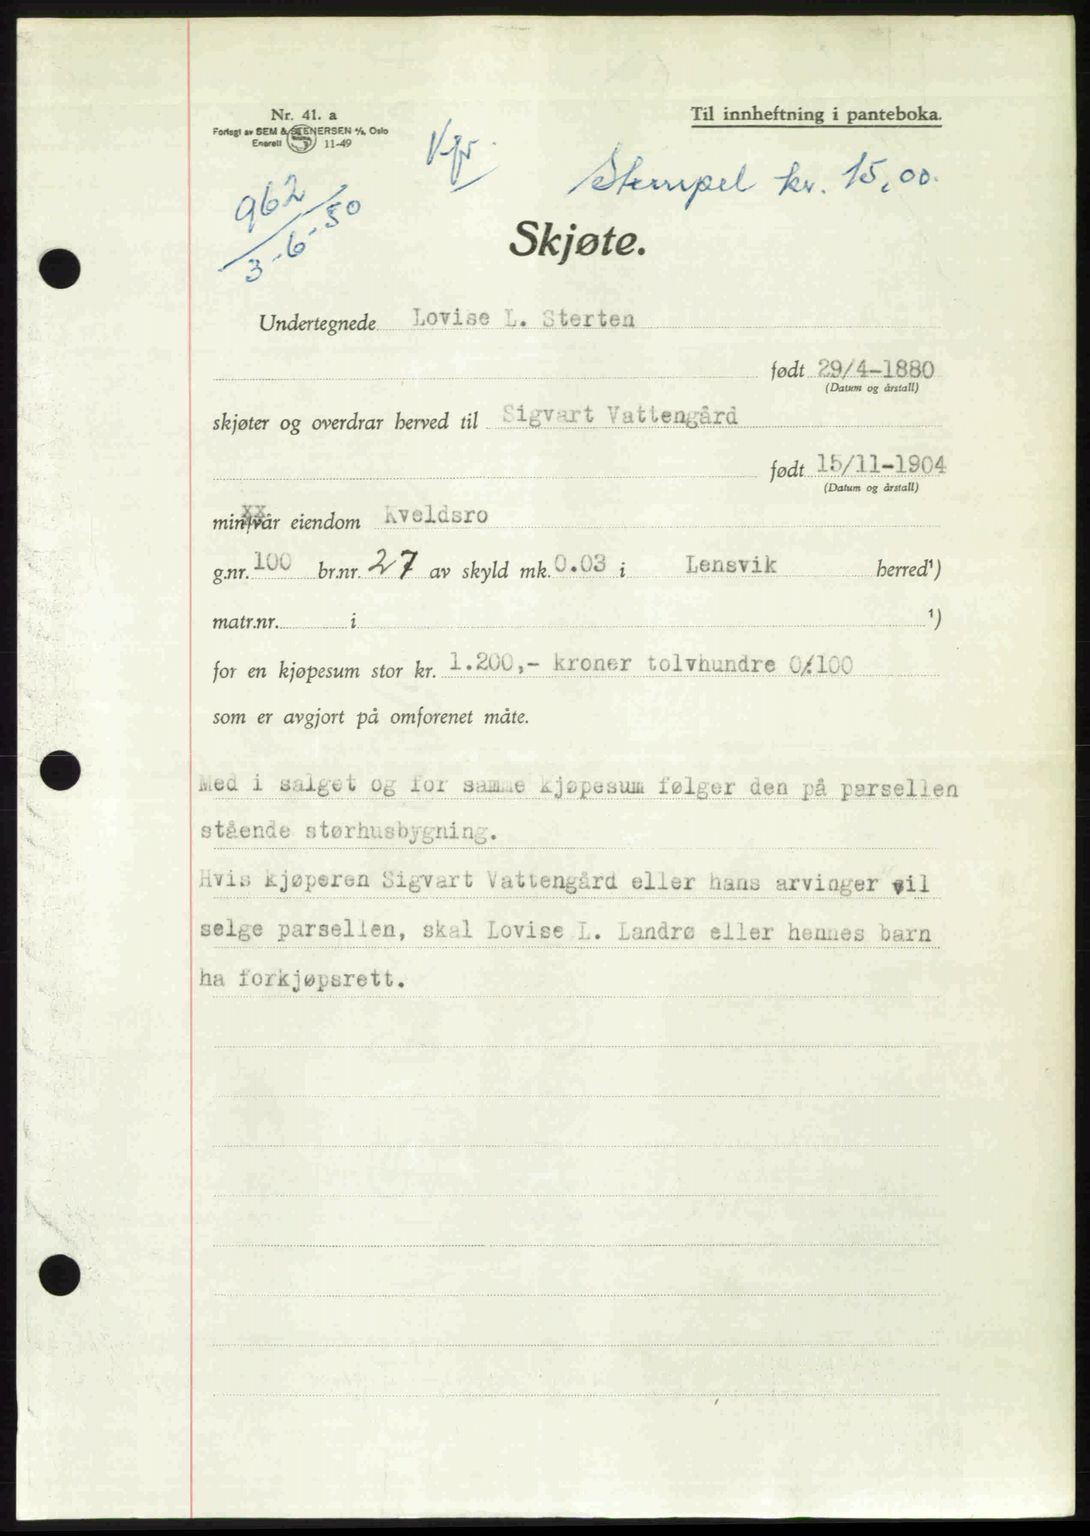 Nr. 41. a
Forlagt av SEM & STENERSEN A/S, Oslo
Enerett 11-49
Til innheftning i panteboka.
Stempel kr. 15,00.
962
3-6-50
Skjøte.
Undertegnede Lovise L. Sterten
født 29/4-1880
(Datum og årstall)
skjøter og overdrar herved til Sigvart Vattengård
født 15/11-1904
(Datum og årstall)
min/vår eiendom Kveldsro
g.nr. 100 br.nr. 27 av skyld mk. 0.03 i Lensvik herred¹)
matr.nr. i ¹)
for en kjøpesum stor kr. 1.200,- kroner tolvhundre 0/100
som er avgjort på omforenet måte.
Med i salget og for samme kjøpesum følger den på parsellen
stående størhusbygning.
Hvis kjøperen Sigvart Vattengård eller hans arvinger vil
selge parsellen, skal Lovise L. Landrø eller hennes barn
ha forkjøpsrett.